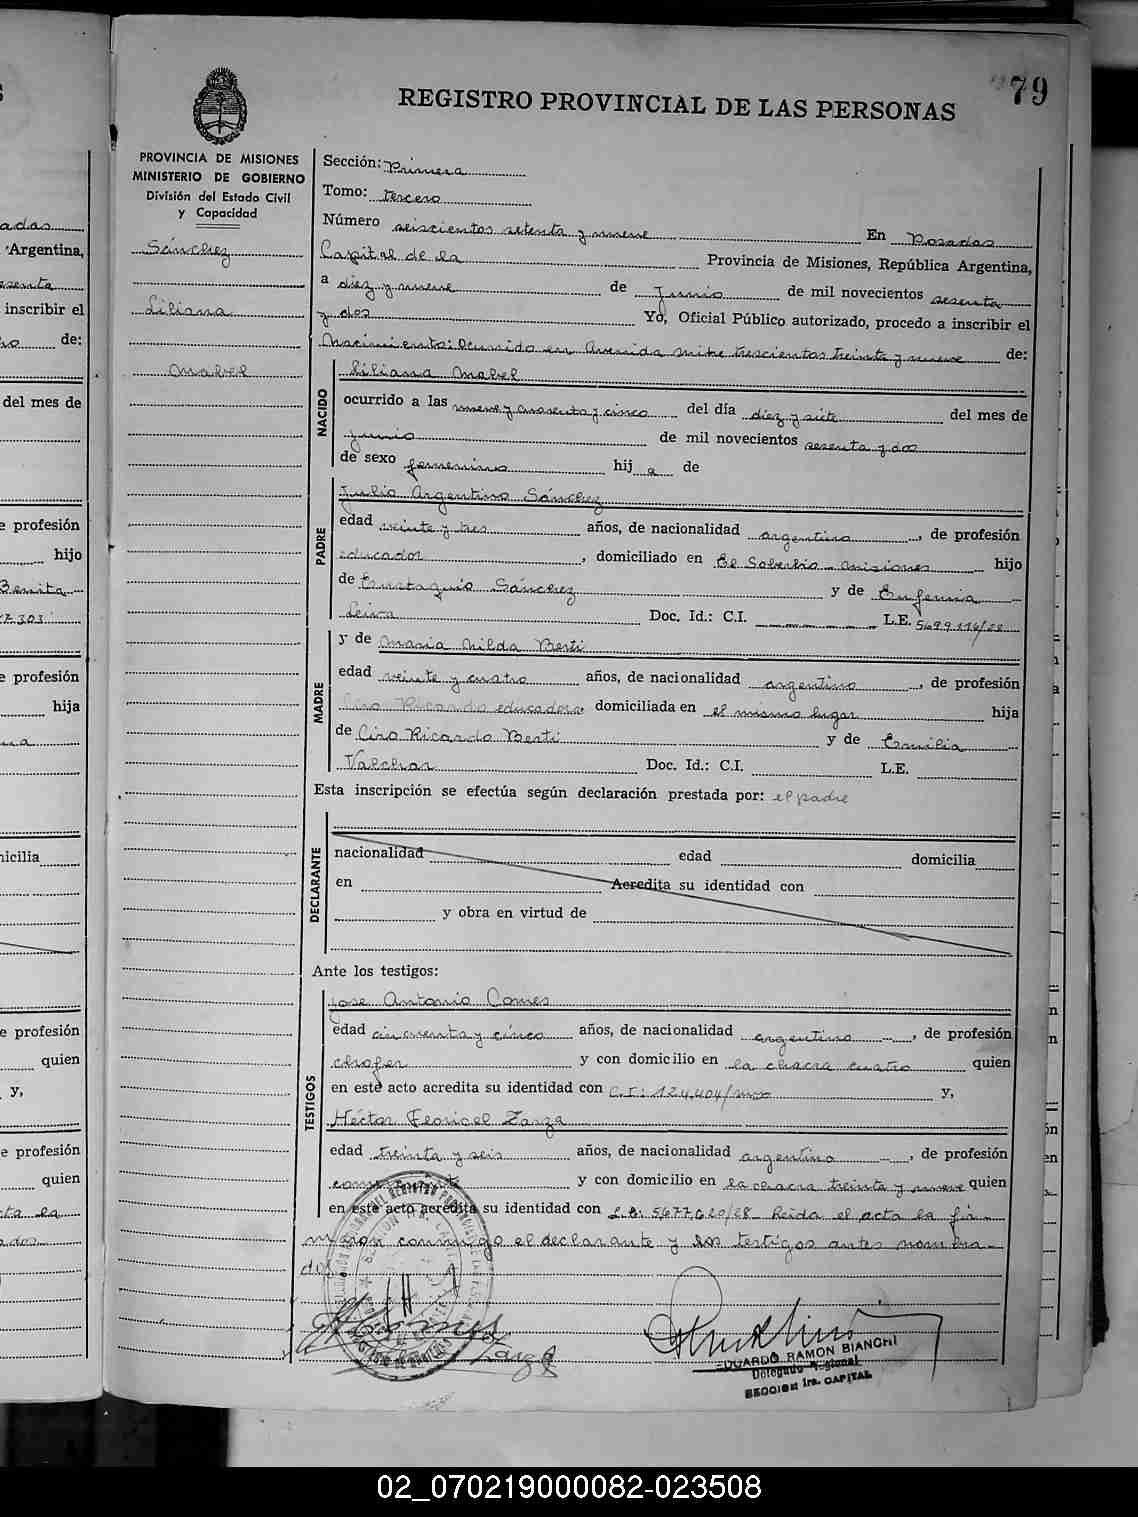 79
REGISTRO PROVINCIAL DE LAS PERSONAS
PROVINCIA DE MISIONES
MINISTERIO DE GOBIERNO
División del Estado Civil
y Capacidad
Sánchez
Liliana
Mabel
Sección: Primera
Tomo: tercero
Número seiscientos setenta y nueve En Posadas
Capital de la Provincia de Misiones, República Argentina,
a diez y nueve de Junio de mil novecientos sesenta
y dos Yo, Oficial Público autorizado, procedo a inscribir el
Nacimiento: Ocurrido en Avenida Mitre trescientos treinta y nueve de:
NACIDO
Liliana Mabel
ocurrido a las nueve y cuarenta y cinco del día diez y siete del mes de
junio de mil novecientos sesenta y dos
de sexo femenino hij a de
PADRE
Julio Argentino Sánchez
edad veinte y tres años, de nacionalidad argentino, de profesión
educador, domiciliado en El Soberbio - Misiones hijo
de Eustaquio Sánchez y de Eufemia
Leiva Doc. Id.: C.I. L.E.
MADRE
y de María Nilda Berti
edad veinte y cuatro años, de nacionalidad argentino, de profesión
Ciro Ricardo educadora, domiciliada en el mismo lugar hija
de Ciro Ricardo Berti y de Emilia
Doc. Id.: C.I. L.E.
Esta inscripción se efectúa según declaración prestada por: el padre
DECLARANTE
nacionalidad edad domicilia
en Acredita su identidad con
y obra en virtud de
Ante los testigos:
TESTIGOS
Jose Antonio Comes
edad cincuenta y cinco años, de nacionalidad argentino, de profesión
chofer y con domicilio en la chacra cuatro quien
en este acto acredita su identidad con C.I: 124.404/ y,
Héctor Zarza
edad treinta y seis años, de nacionalidad argentino, de profesión
y con domicilio en la chacra treinta y nueve quien
en este acto acredita su identidad con L.E: 5.677.020/28 - Leida el acta la fir-
man conmigo el declarante y los testigos antes nombra-
dos
Zarza
EDUARDO RAMON BIANCHI
Delegado Regional
SECCION 1ra. CAPITAL
02_070219000082-023508